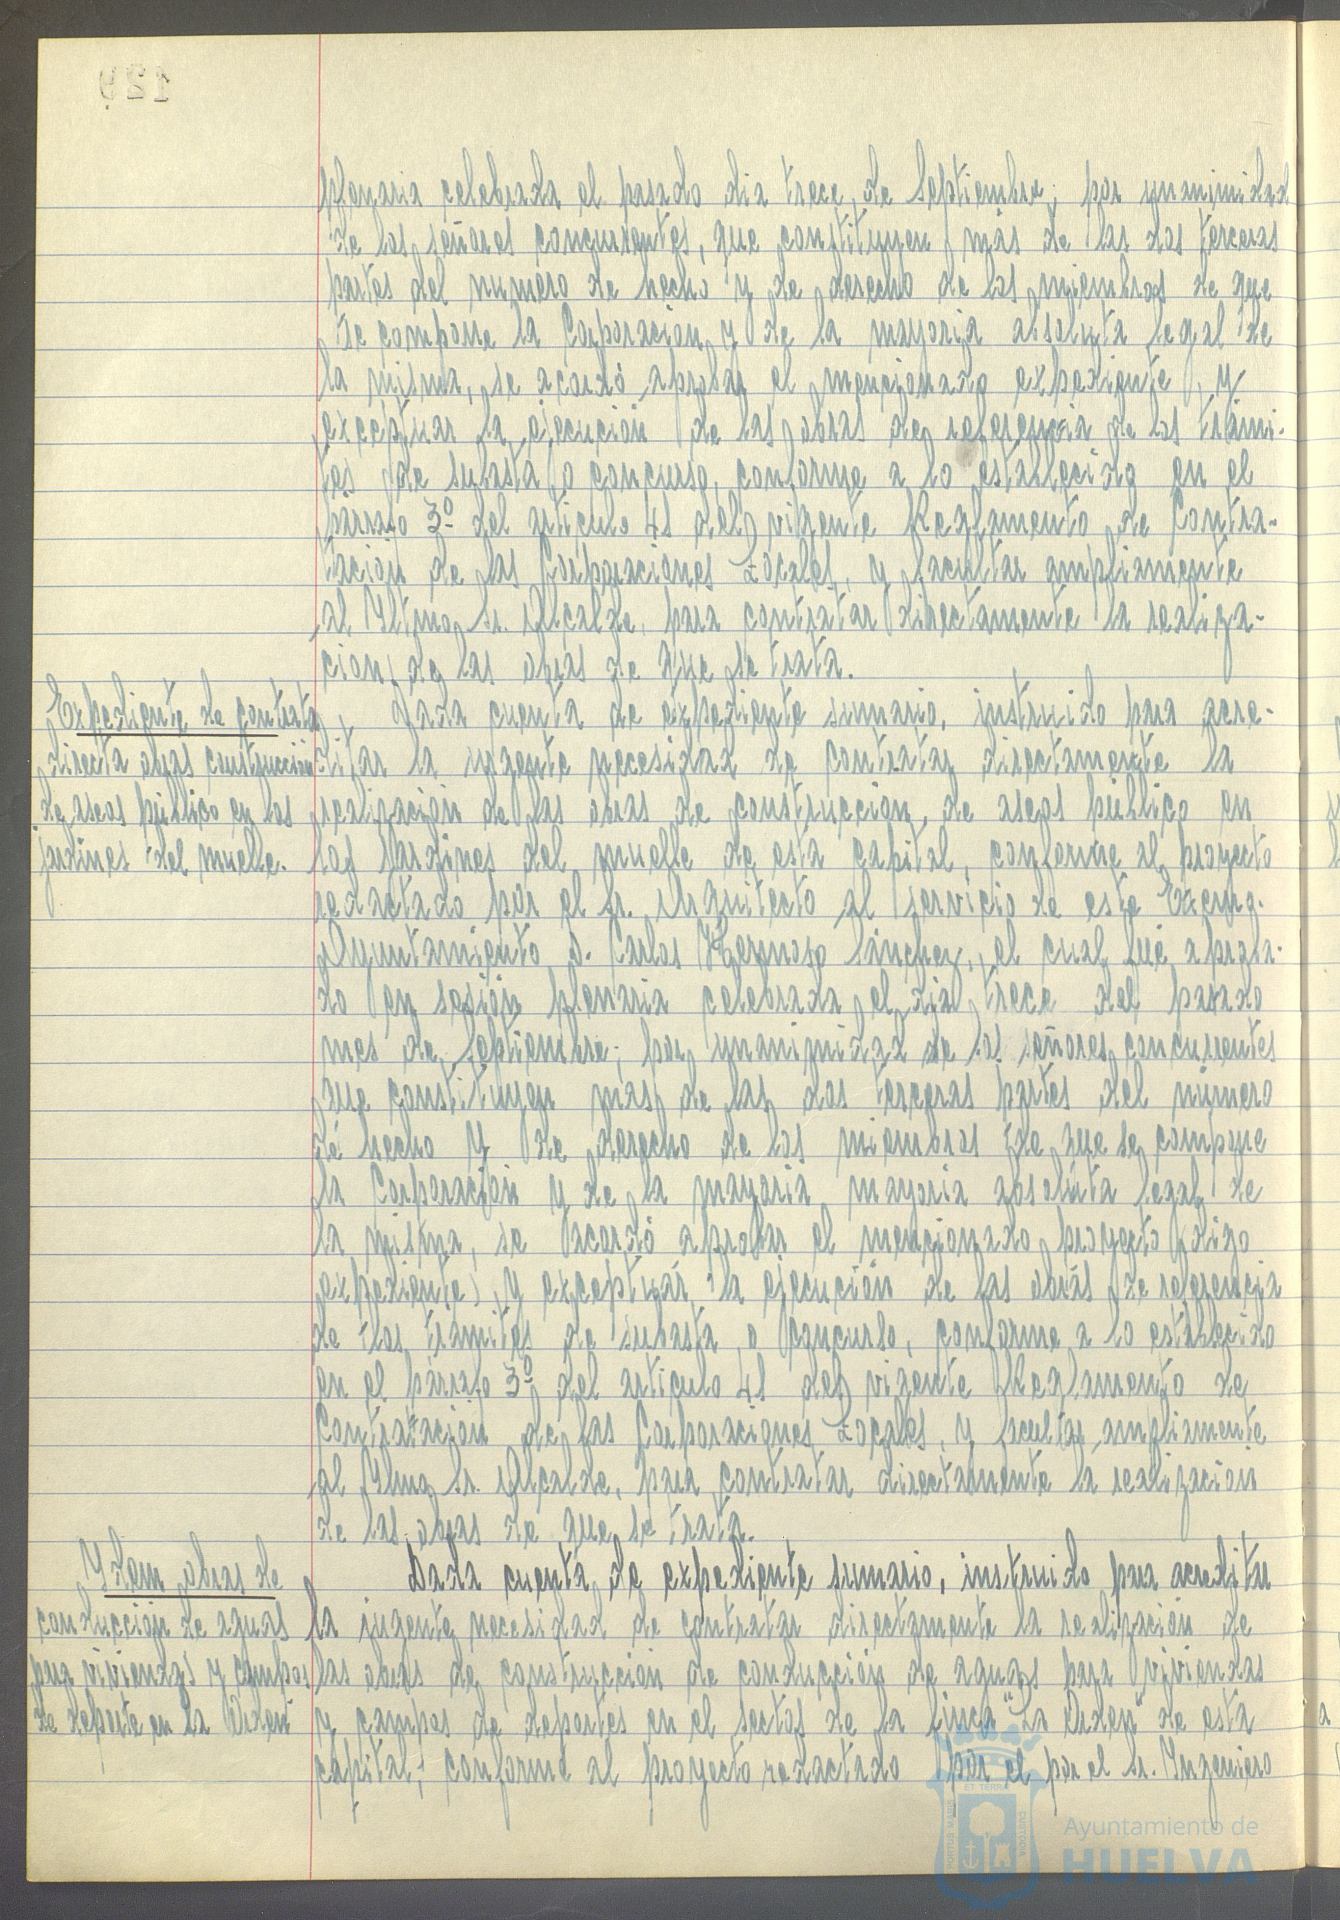 129
plenaria celebrada el pasado dia trece de Septiembre; por unanimidad
de los señores concurrentes, que constituyen más de las dos terceras
partes del numero de hecho y de derecho de los miembros de que
se compone la Corporación y de la mayoria absoluta legal de
la misma, se acordó aprobar el mencionado expediente, y
exceptuar la ejecución de las obras de referencia de los trámi-
tes de subasta o concurso, conforme a lo establecido en el
párrafo 3º del articulo 41 del vigente Reglamento de Contra-
tación de las Corporaciones Locales, y facultar ampliamente
al Iltmo. Sr. Alcalde, para contratar directamente la realiza-
cion de las obras de que se trata.
Expediente de contrata
directa obras construcción
de aseos público en los
jardines del muelle.
Dada cuenta de expediente sumario, instruido para acre-
ditar la urgente necesidad de contratar directamente la
realización de las obras de construcción de aseos público en
los jardines del muelle de esta capital, conforme al proyecto
redactado por el Sr. Arquitecto al servicio de este Excmo.
Ayuntamiento D. Carlos Hermoso Sánchez, el cual fué aproba-
do en sesión plenaria celebrada el dia trece del pasado
mes de Septiembre; por unanimidad de los señores concurrentes
que constituyen mas de las dos terceras partes del número
de hecho y de derecho de los miembros de que se compone
la Corporación y de la mayoria mayoria absoluta legal de
la misma, se acordó aprobar el mencionado proyecto (digo
expediente), y exceptuar la ejecución de las obras de referencia
de los trámites de subasta o concurso, conforme a lo establecido
en el párrafo 3º del articulo 41 del vigente Reglamento de
Contratación de las Corporaciones Locales, y facultar ampliamente
al Iltmo. Sr. Alcalde, para contratar directamente la realización
de las obras de que se trata.
Ydem obras de
conducción de aguas
para viviendas y campos
de deporte en la Orden
Dada cuenta de expediente sumario, instruido para acreditar
la urgente necesidad de contratar directamente la realización de
las obras de construcción de conducción de aguas para viviendas
y campos de deportes en el sector de la finca "La Orden" de esta
capital; conforme al proyecto redactado por el por el Sr. Ingeniero
ET TERRA
PORTUS MARIS
CUSTODIA
Ayuntamiento de
HUELVA